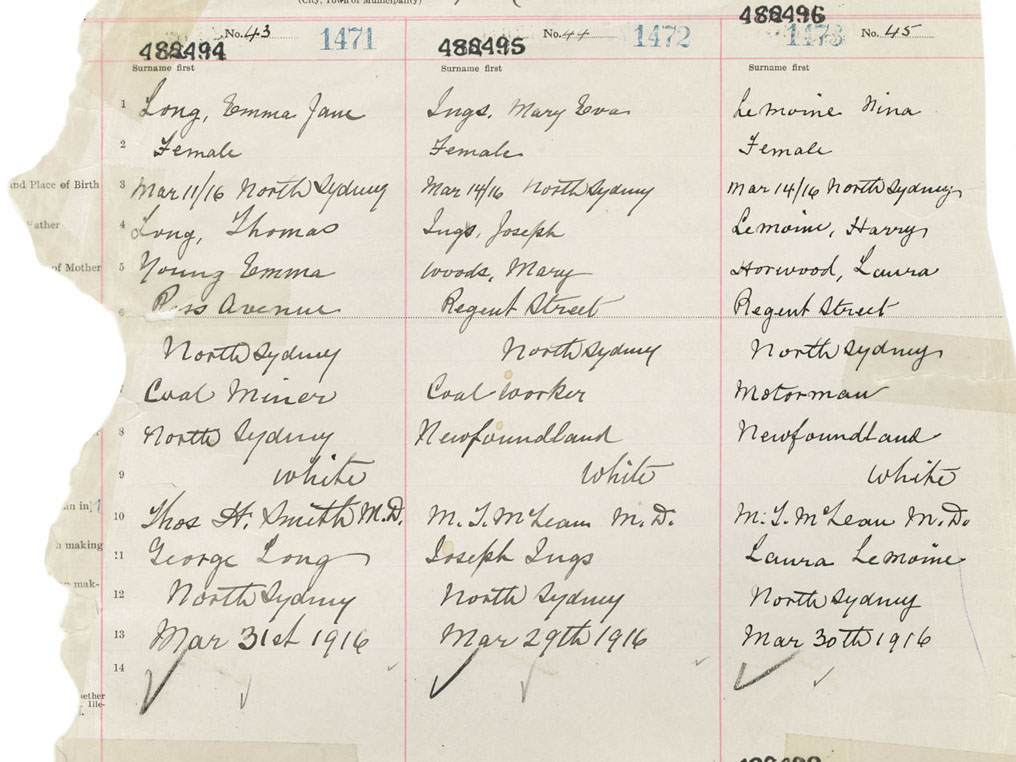 (City, Town or Municipality)
488494 No. 43 1471
488495 No. 44 1472
488496 1473 No. 45
Surname first Surname first Surname first
1 Long, Emma Jane Ings, Mary Eva Le moine Nina
2 Female Female Female
and Place of Birth 3 Mar 11/16 North Sydney Mar 14/16 North Sydney Mar 14/16 North Sydney
Father 4 Long, Thomas Ings, Joseph Le moine, Harry
of Mother 5 Young Emma Woods, Mary Horwood, Laura
6 Ross Avenue Regent Street Regent Street
North Sydney North Sydney North Sydney
7 Coal Miner Coal Worker Motorman
8 North Sydney Newfoundland Newfoundland
9 White White White
10 Thos H. Smith M.D. M.T. McLean M.D. M.T. McLean M.D.
h making 11 George Long Joseph Ings Laura Le Moine
mak- 12 North Sydney North Sydney North Sydney
13 Mar 31st 1916 Mar 29th 1916 Mar 30th 1916
14
Ille-